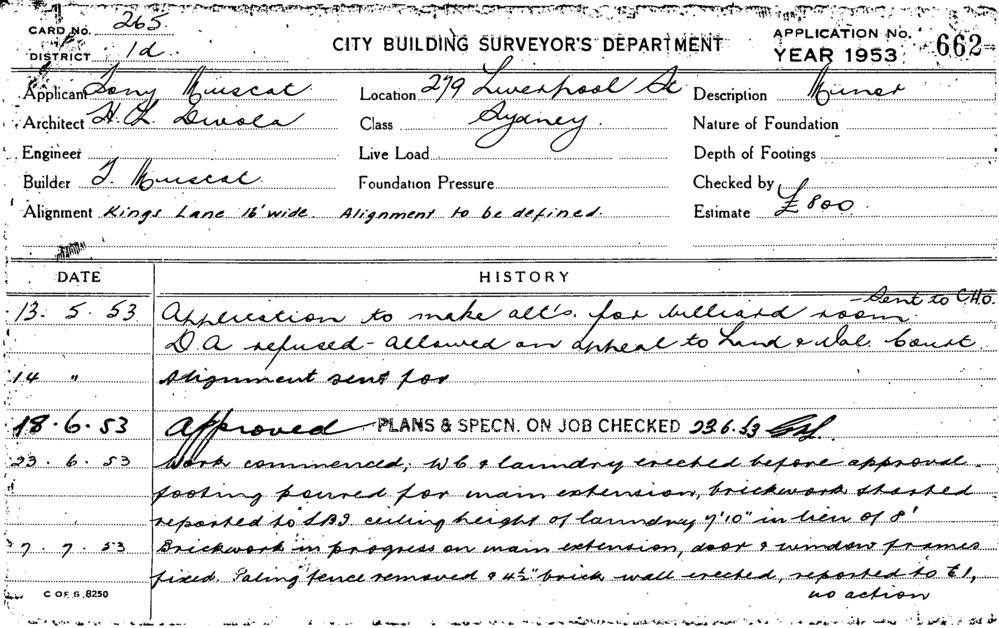 CARD No. 265
DISTRICT 1d.
CITY BUILDING SURVEYOR'S DEPARTMENT
APPLICATION No.
YEAR 1953
662
Applicant Tony Muscat
Location 279 Liverpool St
Description Minor
Architect H. L.
Class Sydney.
Nature of Foundation
Engineer
Live Load
Depth of Footings
Builder T. Muscat.
Foundation Pressure
Checked by
Alignment Kings Lane 16' wide. Alignment to be defined.
Estimate £800.
DATE HISTORY
- Sent to C.H.O.
13. 5. 53 Application to make alt's. for billiard room.
D.A refused - allowed on appeal to Land & Val. Court.
14 " Alignment sent for
18.6.53 Approved PLANS & SPECN. ON JOB CHECKED 23.6.53
23. 6. 53 Work commenced; W.C. & laundry erected before approval.
footing poured for main extension, brickwork started
reported to ceiling height of laundry 7'10" in lieu of 8'
7. 7. 53 Brickwork in progress on main extension, door & window frames
fixed. Paling fence removed & 4½" brick wall erected, reported to
no action
C OF S 8250